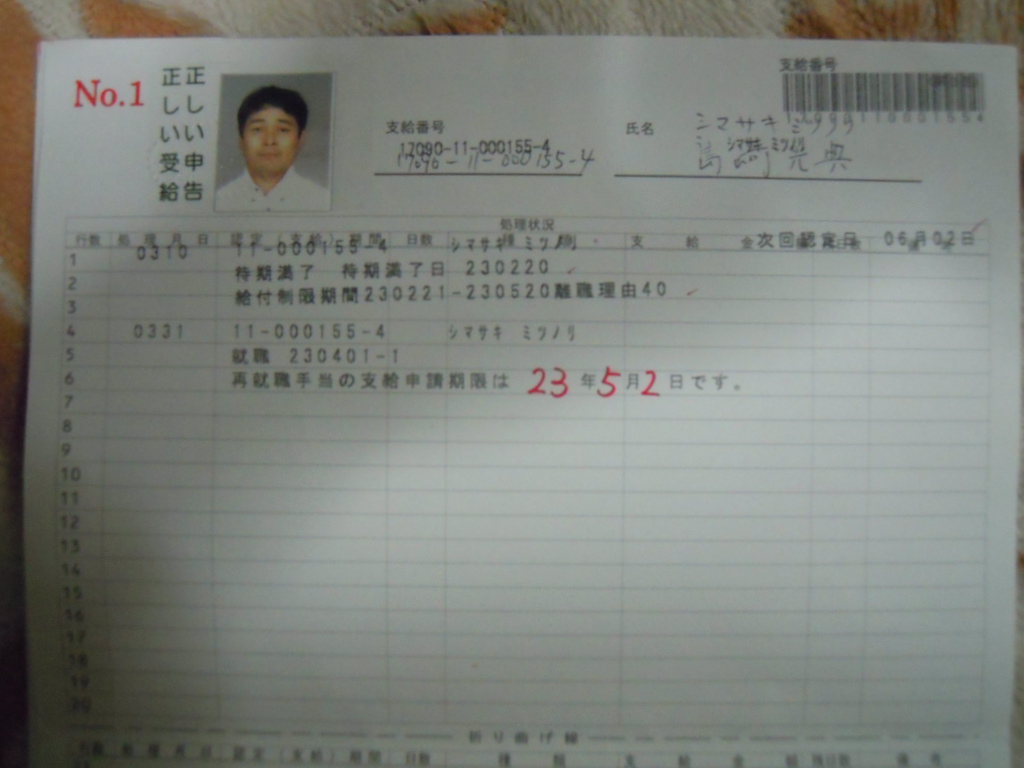 No.1
正しい申告
正しい受給
支給番号
17090-11-000155-4
17090-11-000155-4
氏名
シマサキ ミツノリ
シマサキ ミツノリ
島崎光典
支給番号
処理状況
行数 処理月日 認定(支給)期間 日数 種 類 支 給 金 次回認定日 06月02日
1 0310 11-000155-4 シマサキ ミツノリ
2 待期満了 待期満了日 230220
3 給付制限期間230221-230520離職理由40
4 0331 11-000155-4 シマサキ ミツノリ
5 就職 230401-1
6 再就職手当の支給申請期限は 23年5月2日です。
7
8
9
10
11
12
13
14
15
16
17
18
19
20
折り曲げ線
行数 処理月日 認定(支給)期間 日数 種 類 支 給 金 額 残日数 備 考